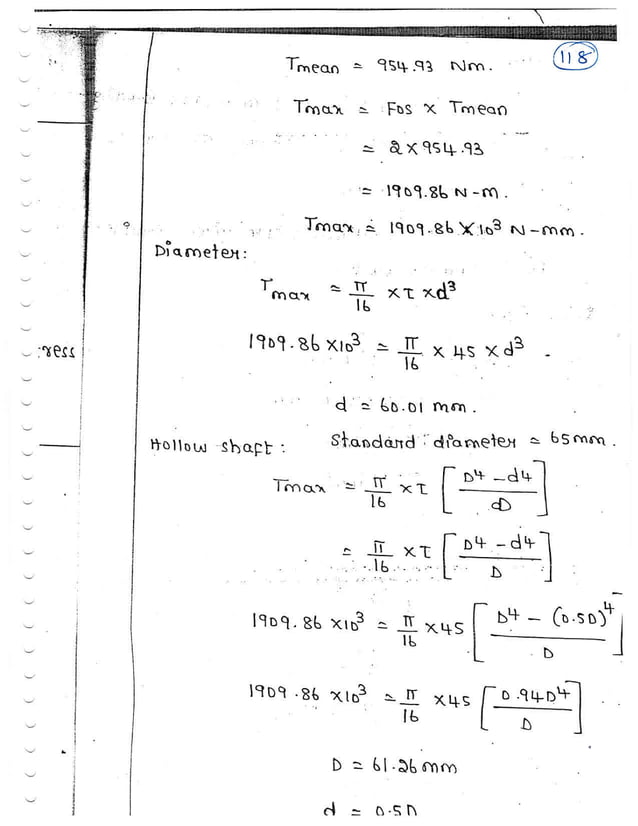 118
Tmean = 954.93 Nm.
Tmax = FOS × Tmean
= 2 × 954.93
= 1909.86 N-m.
Tmax = 1909.86 × 10³ N-mm.
Diameter:
Tmax = π/16 × τ × d³
1909.86 × 10³ = π/16 × 45 × d³
ress
d = 60.01 mm.
Standard diameter = 65mm.
Hollow shaft:
Tmax = π/16 × τ [D⁴ - d⁴ / dD]
= π/16 × τ [D⁴ - d⁴ / D]
1909.86 × 10³ = π/16 × 45 [D⁴ - (0.5D)⁴ / D]
1909.86 × 10³ = π/16 × 45 [0.94D⁴ / D]
D = 61.26 mm
d = 0.5D